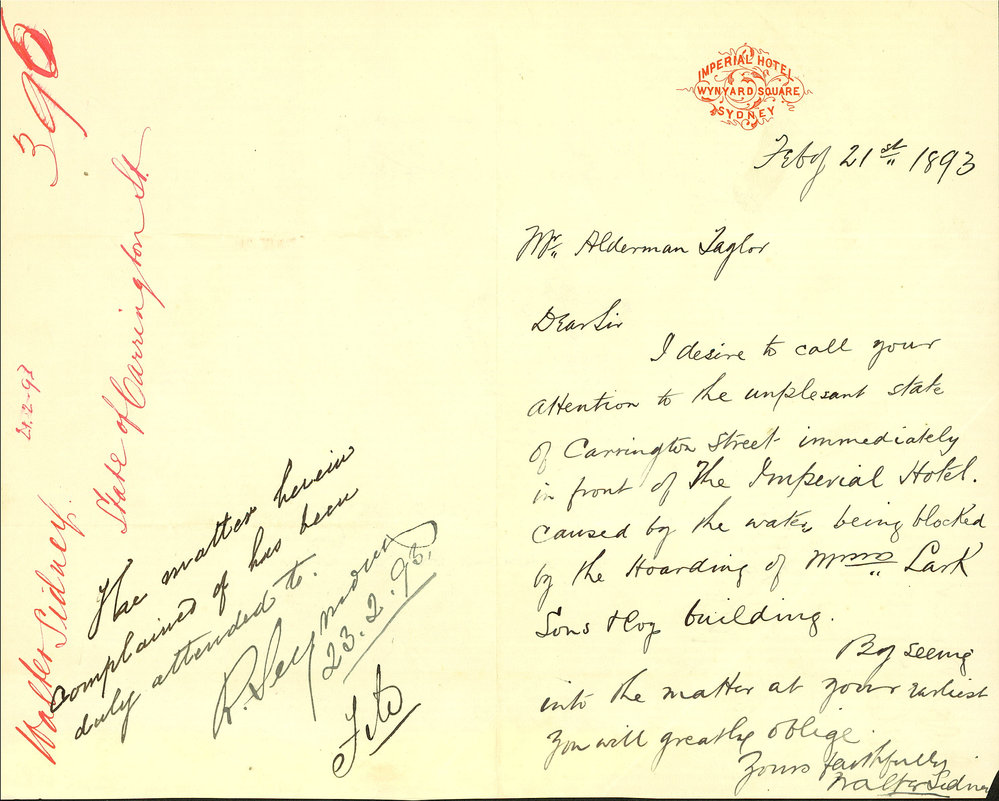 396
21.2.93
Walter Sidney
State of Carrington St.
The matter herein
complained of has been
duly attended to.
R. Seymour
23.2.93.
File
IMPERIAL HOTEL
WYNYARD SQUARE
SYDNEY
Feby 21st 1893
Mr. Alderman Taylor
Dear Sir
I desire to call your
attention to the unplesant state
of Carrington Street immediately
in front of The Imperial Hotel.
caused by the water being blocked
by the Hoarding of Messrs Lark
Sons & Coy building.
By seeing
into the matter at your earliest
you will greatly oblige.
Yours faithfully
Walter Sidney